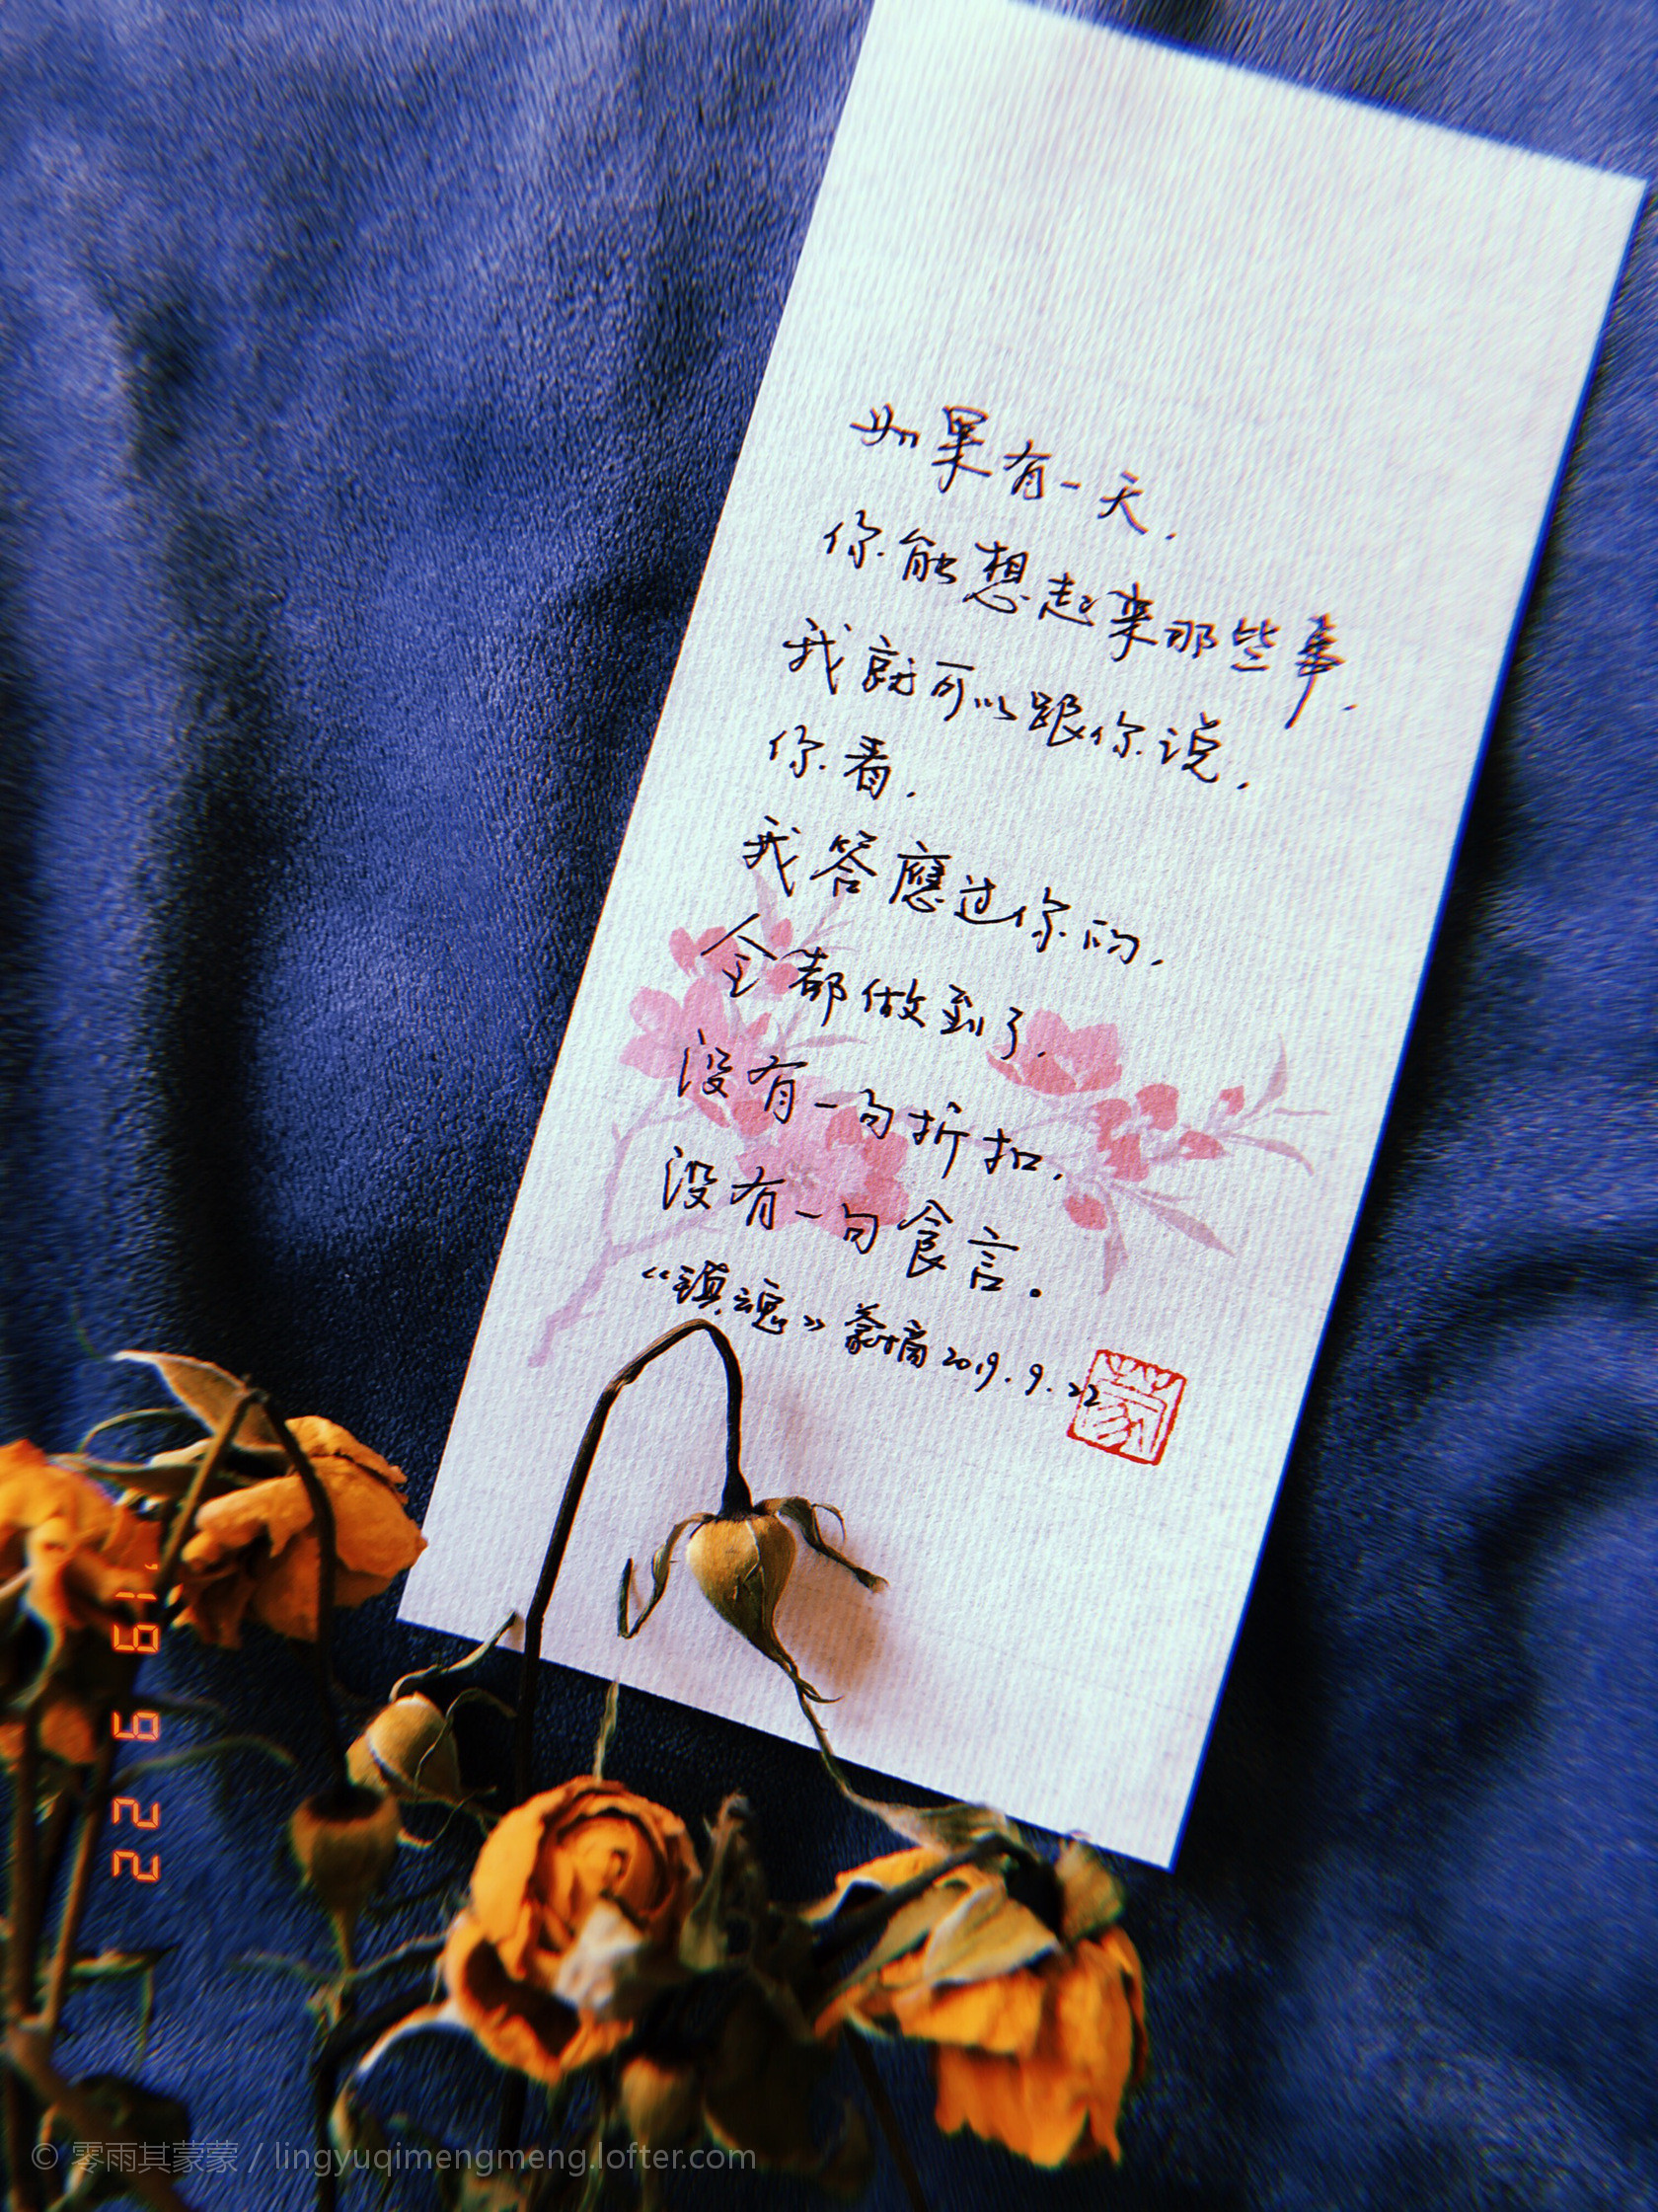 如果有一天，
你能想起来那些事，
我就可以跟你说，
你看，
我答應过你的，
全都做到了，
没有一句折扣，
没有一句食言。
《鎮魂》蒙摘2019.9.22
蒙
'19 9 22
© 零雨其蒙蒙 / lingyuqimengmeng.lofter.com